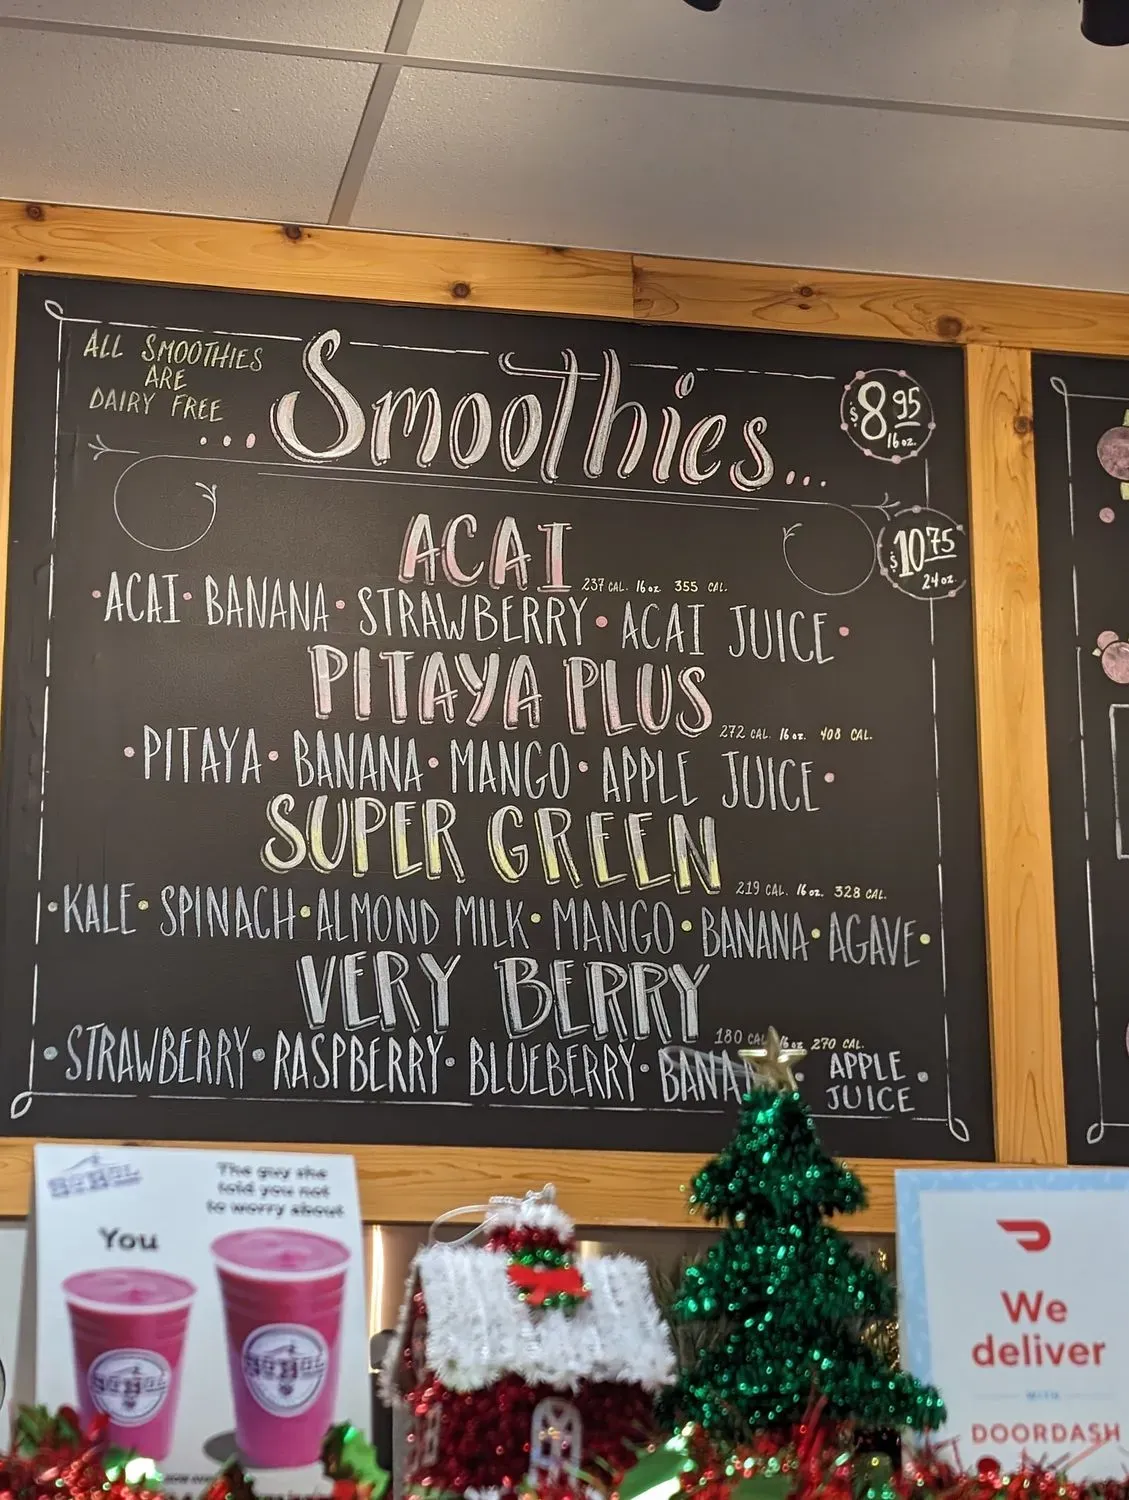 ALL SMOOTHIES
ARE
DAIRY FREE
...Smoothies...
$8.95
16 oz.
$10.75
24 oz.
ACAI
237 CAL. 16 oz. 355 CAL.
•ACAI•BANANA•STRAWBERRY•ACAI JUICE•
PITAYA PLUS
272 CAL. 16 oz. 408 CAL.
•PITAYA•BANANA•MANGO•APPLE JUICE•
SUPER GREEN
219 CAL. 16 oz. 328 CAL.
•KALE•SPINACH•ALMOND MILK•MANGO•BANANA•AGAVE•
VERY BERRY
180 CAL 16 oz 270 CAL.
•STRAWBERRY•RASPBERRY•BLUEBERRY•BANA • APPLE JUICE•
SOBOL
You
The guy she
told you not
to worry about
SOBOL
SOBOL
We
deliver
WITH
DOORDASH